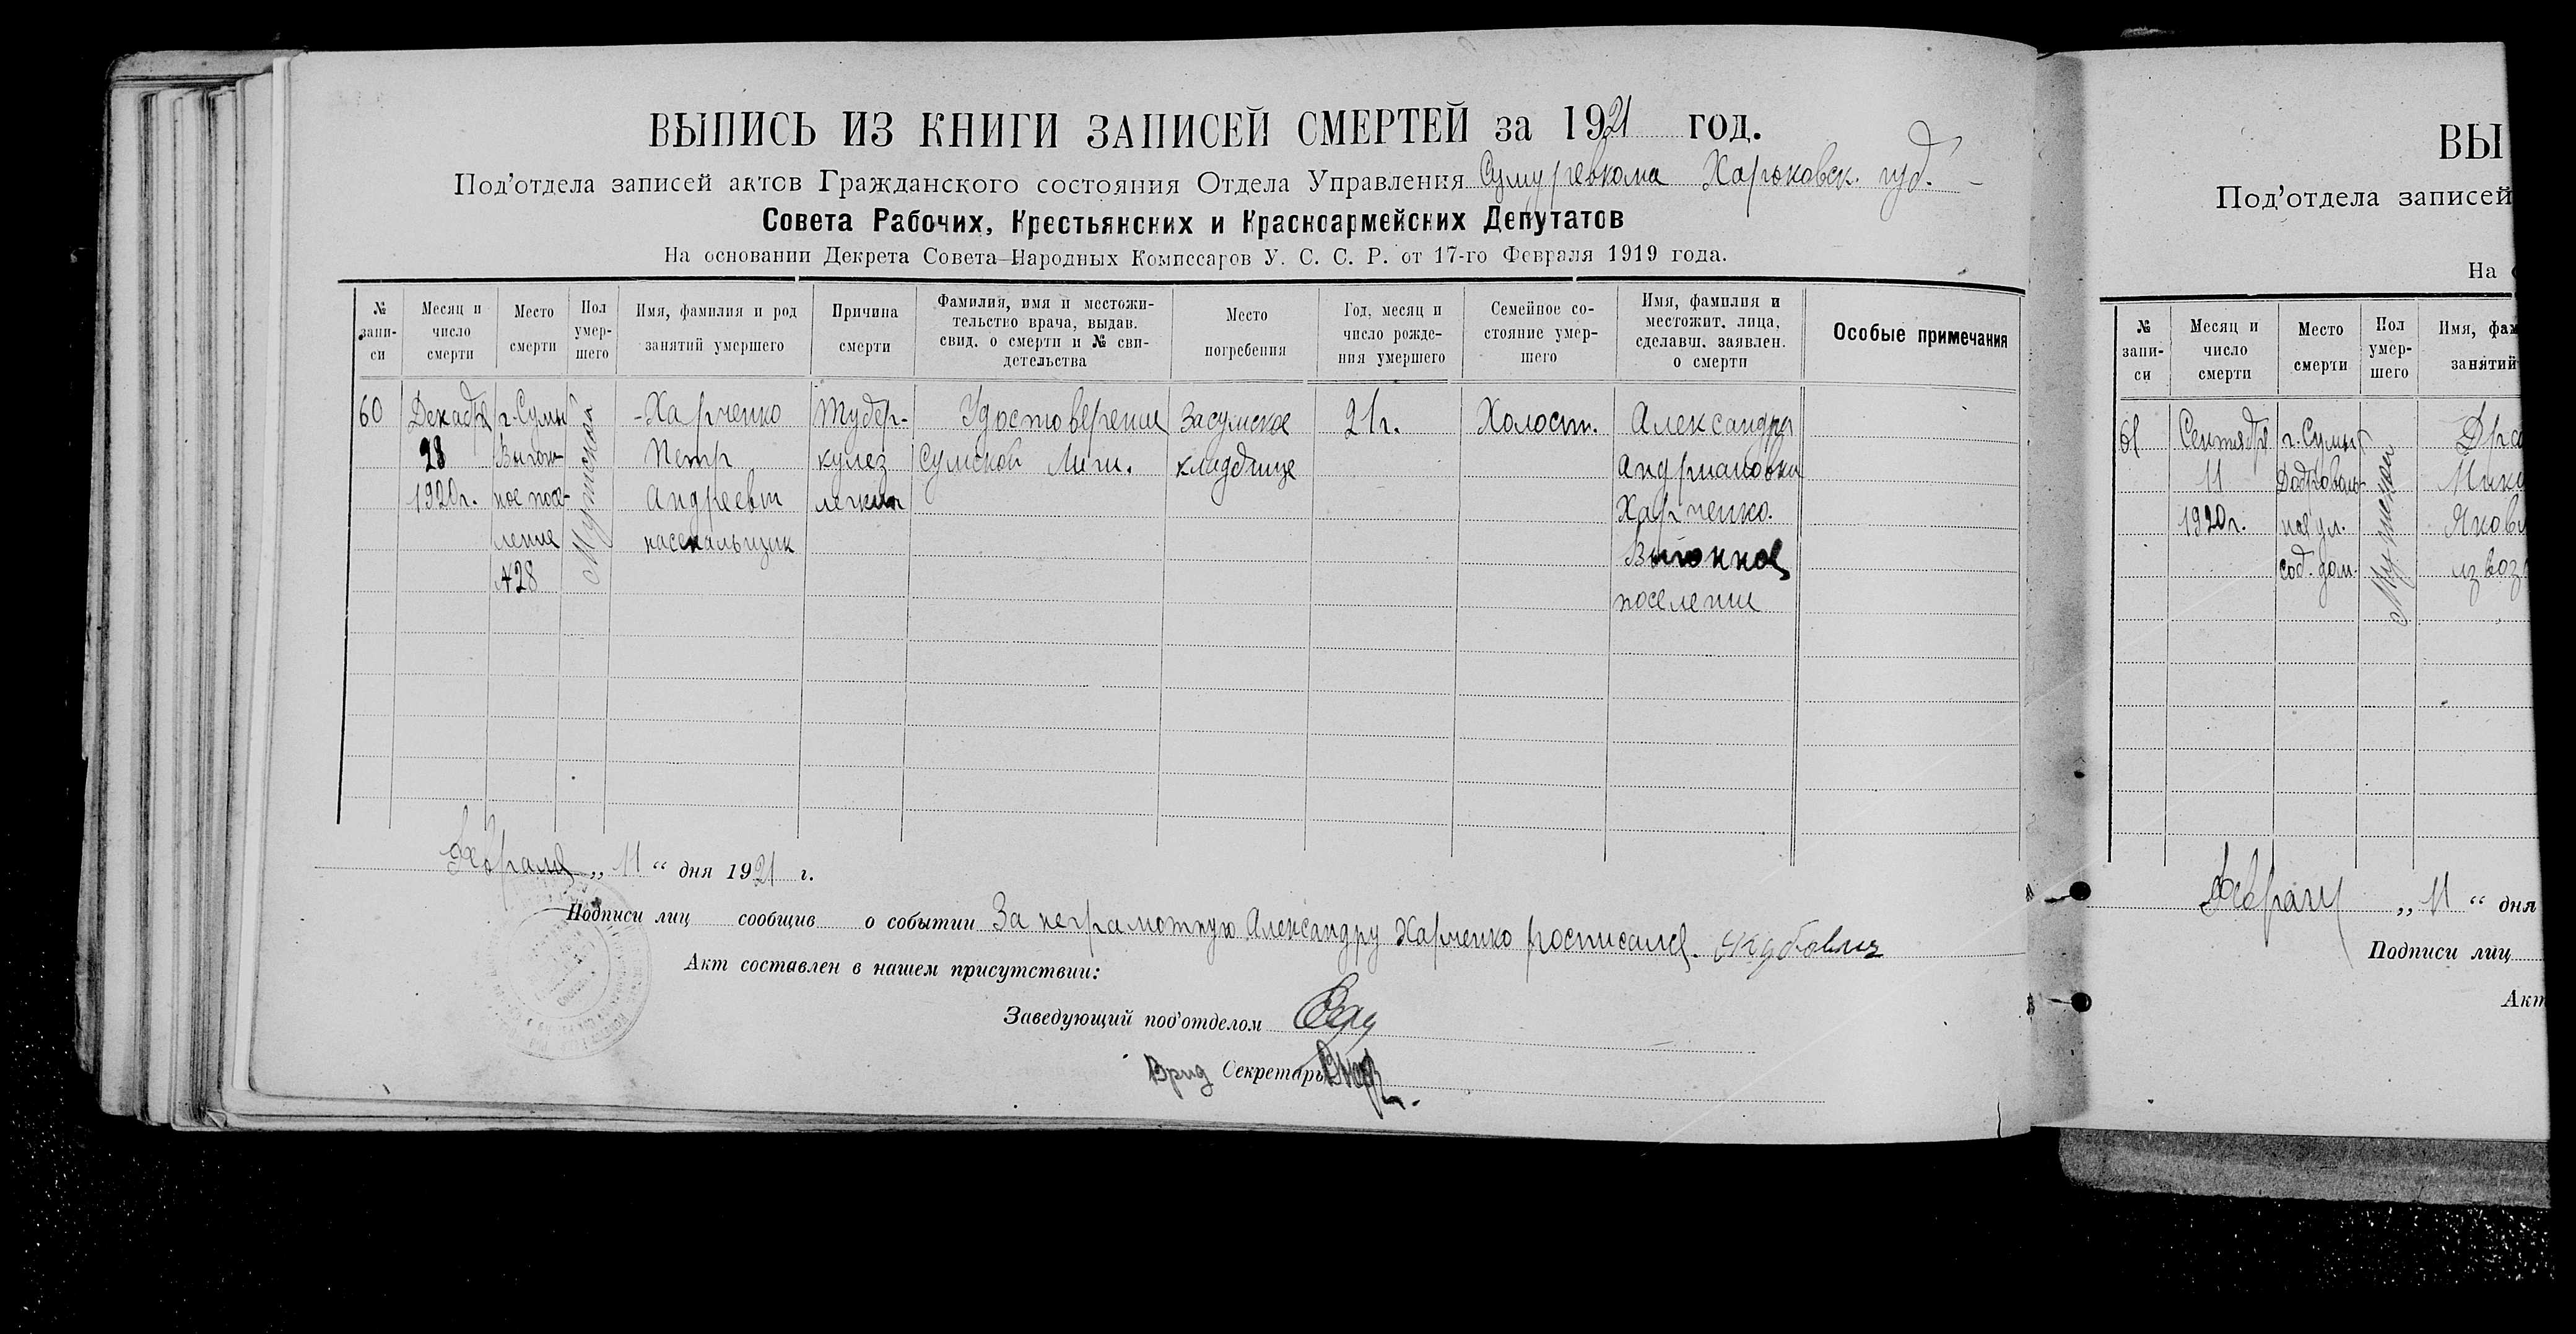 ВЫПИСЬ ИЗ КНИГИ ЗАПИСЕЙ СМЕРТЕЙ за 1921 год.
Под'отдела записей актов Гражданского состояния Отдела Управления Сумуревкома Харьковск. губ.
Совета Рабочих, Крестьянских и Красноармейских Депутатов
На основании Декрета Совета Народных Комиссаров У. С. С. Р. от 17-го Февраля 1919 года.
№ запи-си
Месяц и число смерти
Место смерти
Пол умер-шего
Имя, фамилия и род занятий умершего
Причина смерти
Фамилия, имя и местожи-тельство врача, выдав. свид. о смерти и № сви-детельства
Место погребения
Год, месяц и число рожде-ния умершего
Семейное со-стояние умер-шего
Имя, фамилия и местожит. лица, сделавш. заявлен. о смерти
Особые примечания
60
Декабря
28
1920г.
г. Сумы
Выгон-
ное посе-
ление
№28
Мужской
Харченко
Петр
Андреевич
Тубер-
кулез
легких
Удостоверение
Сумской Мил.
Засумское
кладбище
21г.
Холост.
Александра
Андриановна
Харченко.
Выгонное
поселение
Февраля „ 11 “ дня 1921 г.
Подписи лиц сообщив о событии За неграмотную Александру Харченко росписался.
Акт составлен в нашем присутствии:
Заведующий под'отделом
Врид Секретарь
ВЫ
Под'отдела записей
На
№ запи-си
Месяц и число смерти
Место смерти
Пол умер-шего
Имя, фам
занятий
61
Сентября
11
1920г.
г. Сумы
ная ул.
соб. дом.
Мужской
Февраля „ 11 “ дня
Подписи лиц
Акт